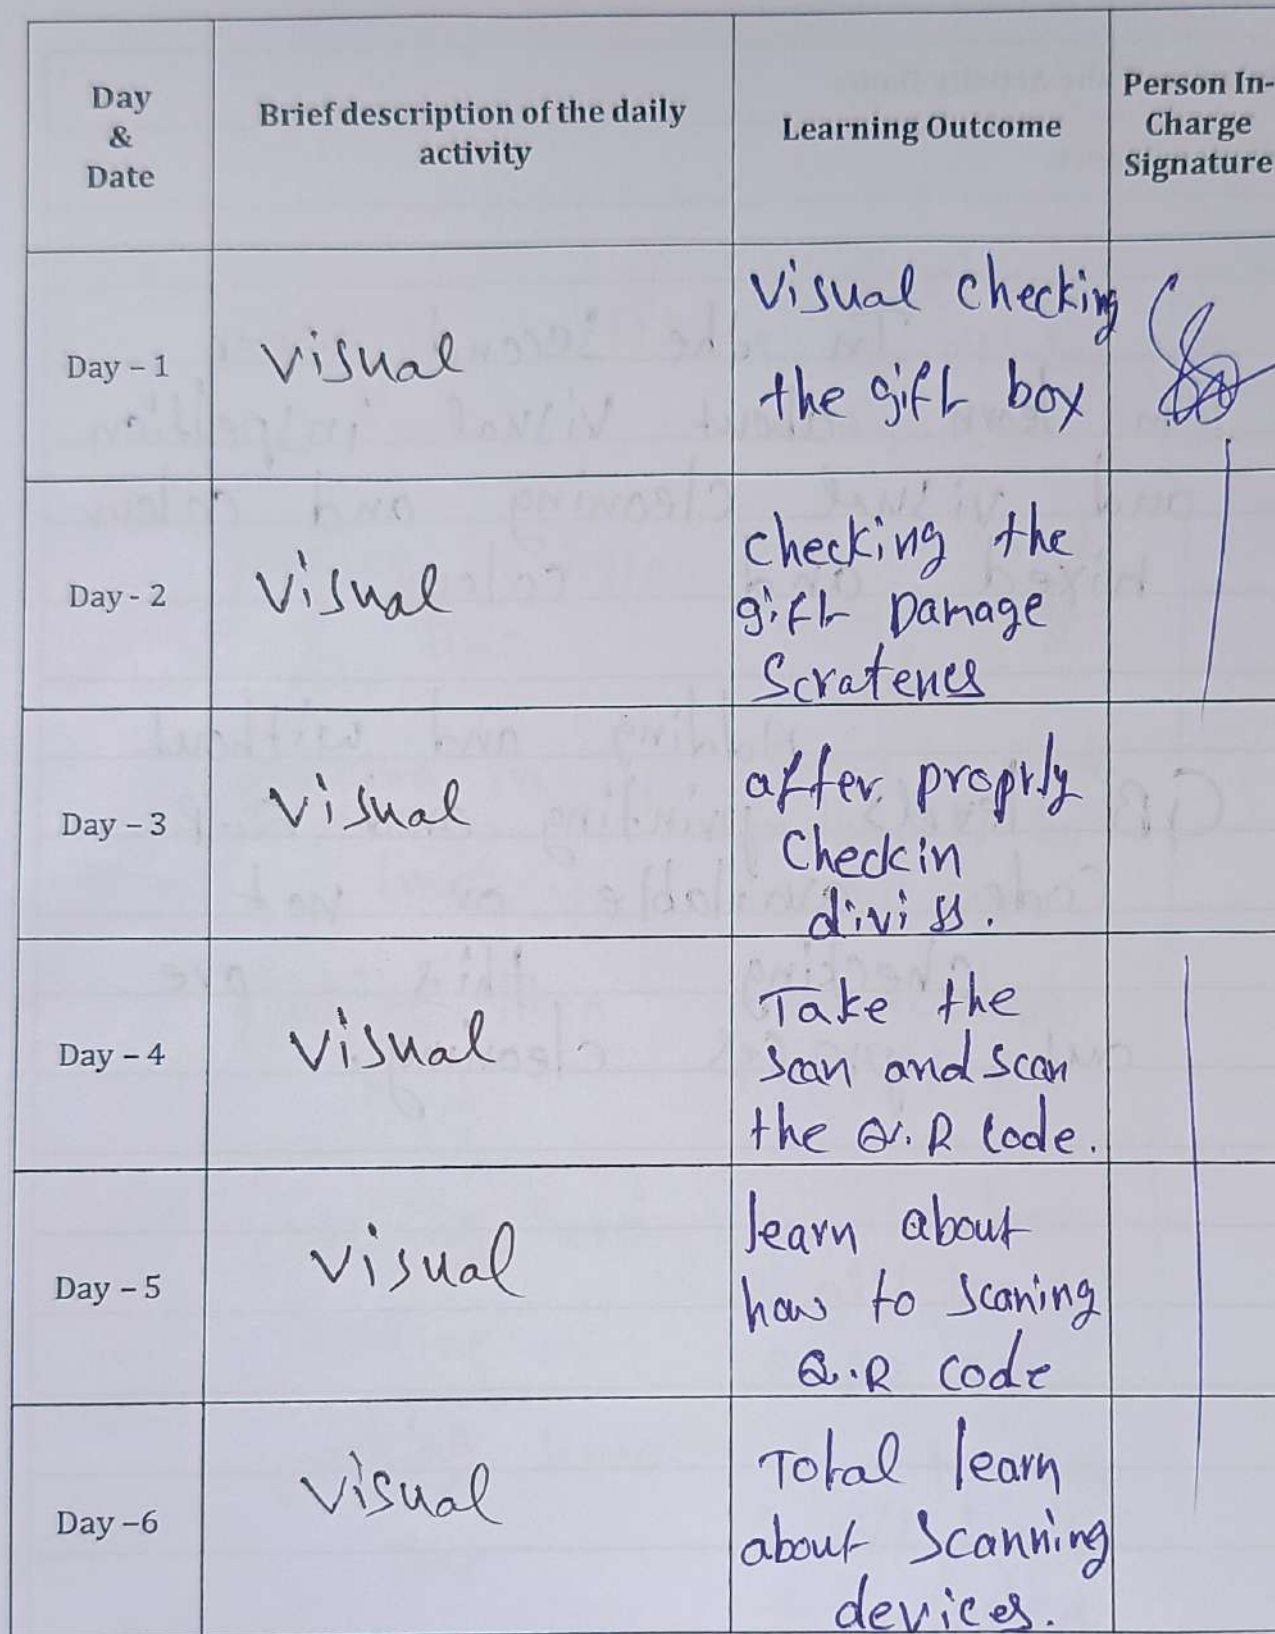 Day
&
Date
Brief description of the daily
activity
Learning Outcome
Person In-
Charge
Signature
Day – 1
Visual
Visual checking
the gift box
Day - 2
Visual
checking the
gift Damage
Scratenes
Day – 3
Visual
after proprly
Checkin
diviss.
Day – 4
Visual
Take the
scan and scan
the Q.R Code.
Day – 5
Visual
learn about
how to scaning
Q.R code
Day –6
Visual
Total learn
about Scanning
devices.